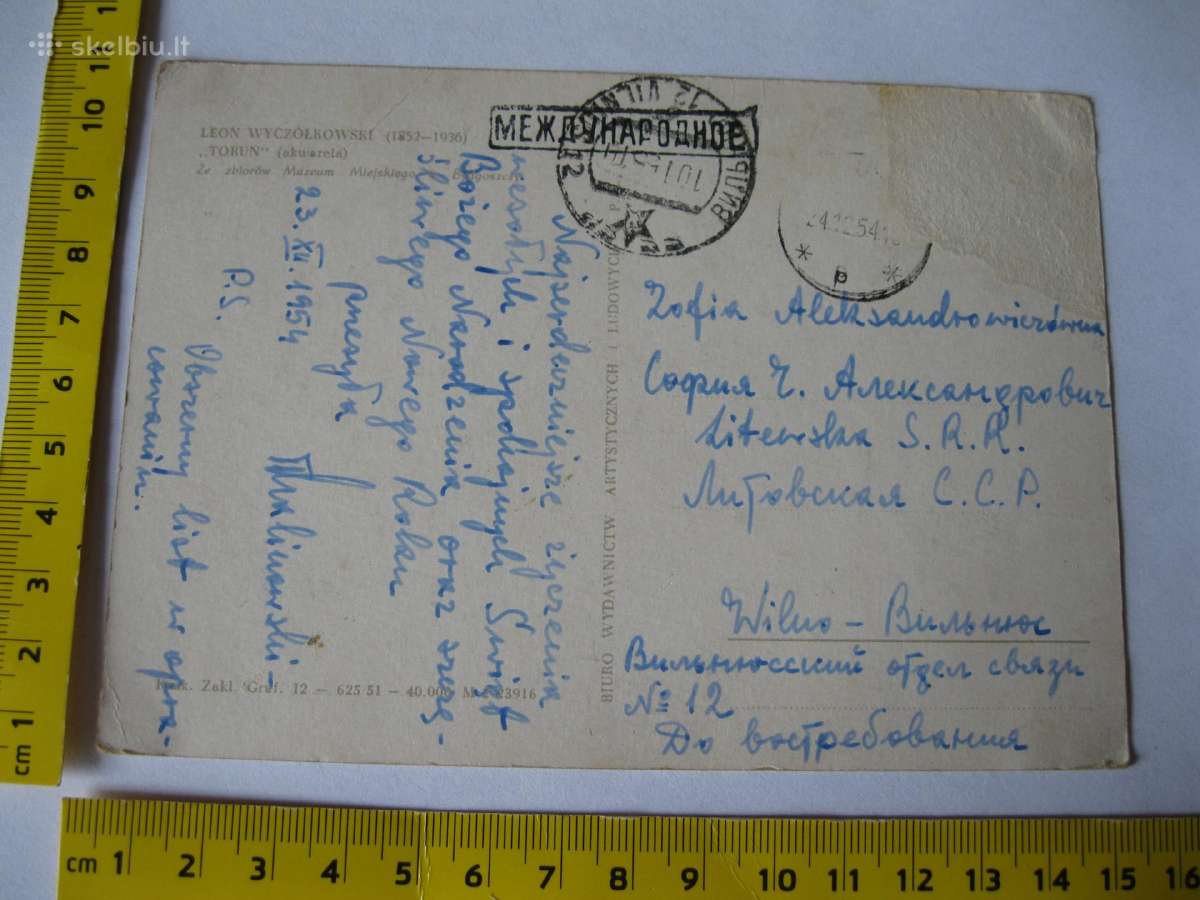 skelbiu.lt
LEON WYCZÓŁKOWSKI (1852—1936)
„TORUŃ” (akwarela)
Ze zbiorów Muzeum Miejskiego Bydgoszczy
МЕЖДУНАРОДНОЕ
12 VILN
ВИЛЬН
12
24.12.54
* p *
Najserdeczniejsze życzenia
wesołych i spokojnych Świąt
Bożego Narodzenia oraz szczę-
śliwego Nowego Roku
przesyła
Malinowski -
23.XII.1954
P.S.
Obszerny list w opra-
cowaniu.
BIURO WYDAWNICTW ARTYSTYCZNYCH I LUDOWYCH
Zofia Aleksandrowiczówna
София Ч. Александрович
Litewska S.R.R.
Литовская С.С.Р.
Wilno — Вильнюс
Вильнюсский отдел связи
№ 12
До востребования
Zakl. Graf. 12 — 625 51 — 40.000
cm 1 2 3 4 5 6 7 8 9 10 11
cm 1 2 3 4 5 6 7 8 9 10 11 12 13 14 15 16